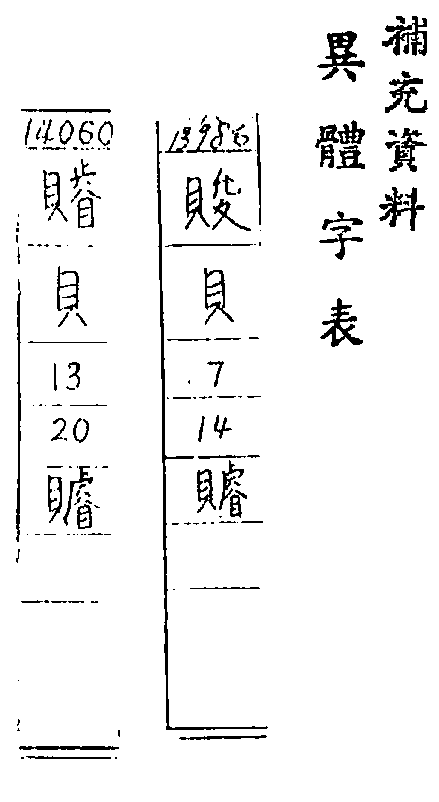 補充資料
異體字表
13986
貝
7
14
14060
貝
13
20